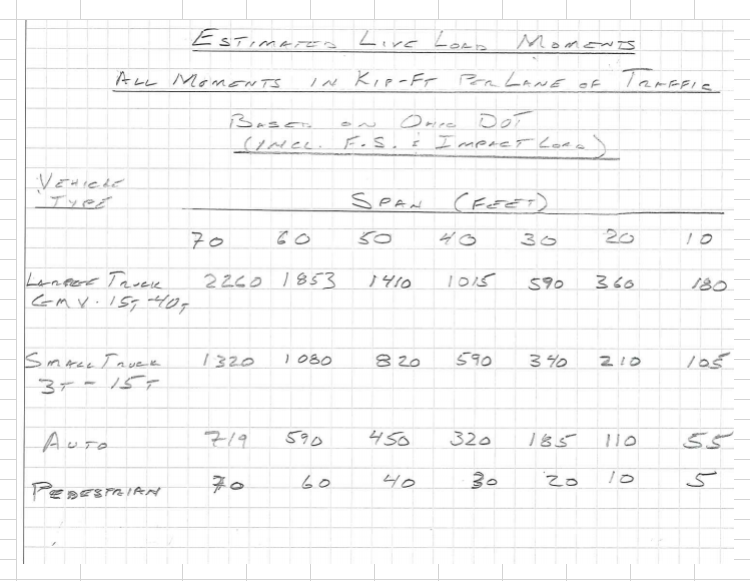 ESTIMATED LIVE LOAD MOMENTS
ALL MOMENTS IN KIP-FT PER LANE OF TRAFFIC
BASED ON OHIO DOT
(INCL. F.S. & IMPACT LOAD)
VEHICLE
TYPE
SPAN (FEET)
70 60 50 40 30 20 10
LARGE TRUCK 2260 1853 1410 1015 590 360 180
15T-40T
SMALL TRUCK 1320 1080 820 590 340 210 105
3T - 15T
AUTO 719 590 450 320 185 110 55
PEDESTRIAN 70 60 40 30 20 10 5